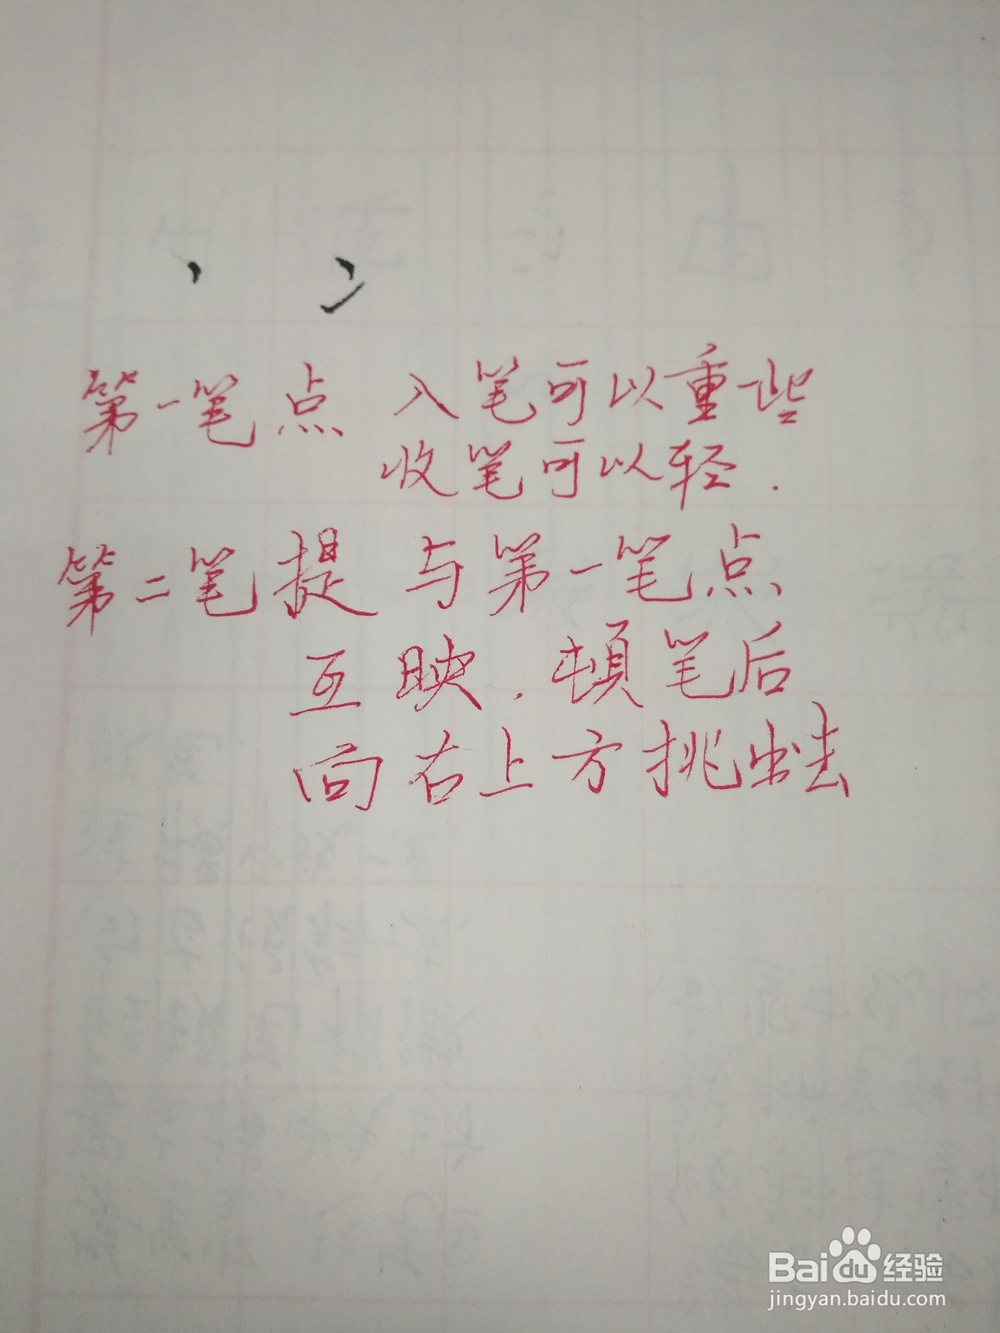 丶 冫
第一笔点 入笔可以重些
收笔可以轻.
第二笔提 与第一笔点
互映.顿笔后
向右上方挑出去
Baidu经验
jingyan.baidu.com